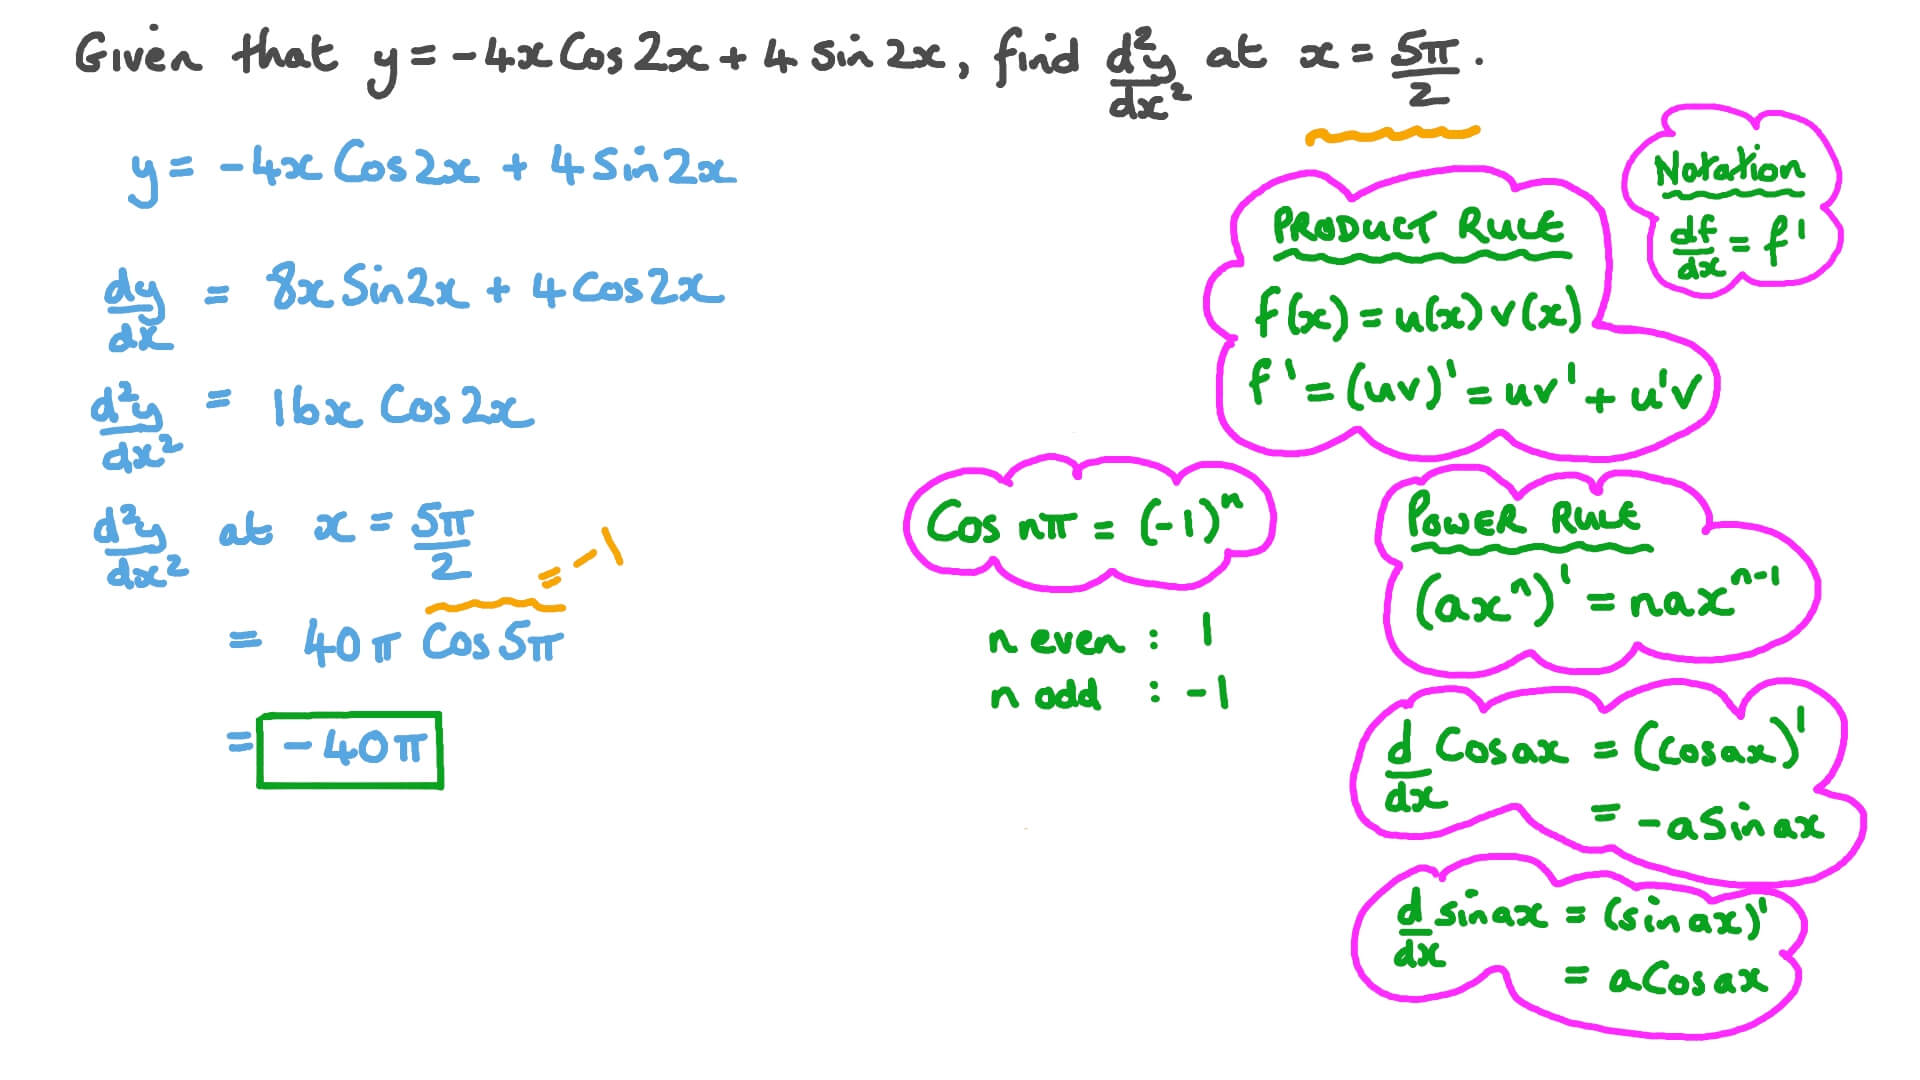 Given that y = -4x Cos 2x + 4 Sin 2x, find d²y/dx² at x = 5π/2.
y = -4x Cos2x + 4 Sin2x
dy/dx = 8x Sin2x + 4 Cos2x
d²y/dx² = 16x Cos 2x
d²y/dx² at x = 5π/2
= -1
= 40π Cos 5π
= -40π
Cos nπ = (-1)ⁿ
n even : 1
n odd : -1
Notation
df/dx = f'
PRODUCT RULE
f(x) = u(x) v(x)
f' = (uv)' = uv' + u'v
POWER RULE
(axⁿ)' = naxⁿ⁻¹
d/dx Cos ax = (Cos ax)'
= -a Sin ax
d/dx sin ax = (sin ax)'
= a Cos ax